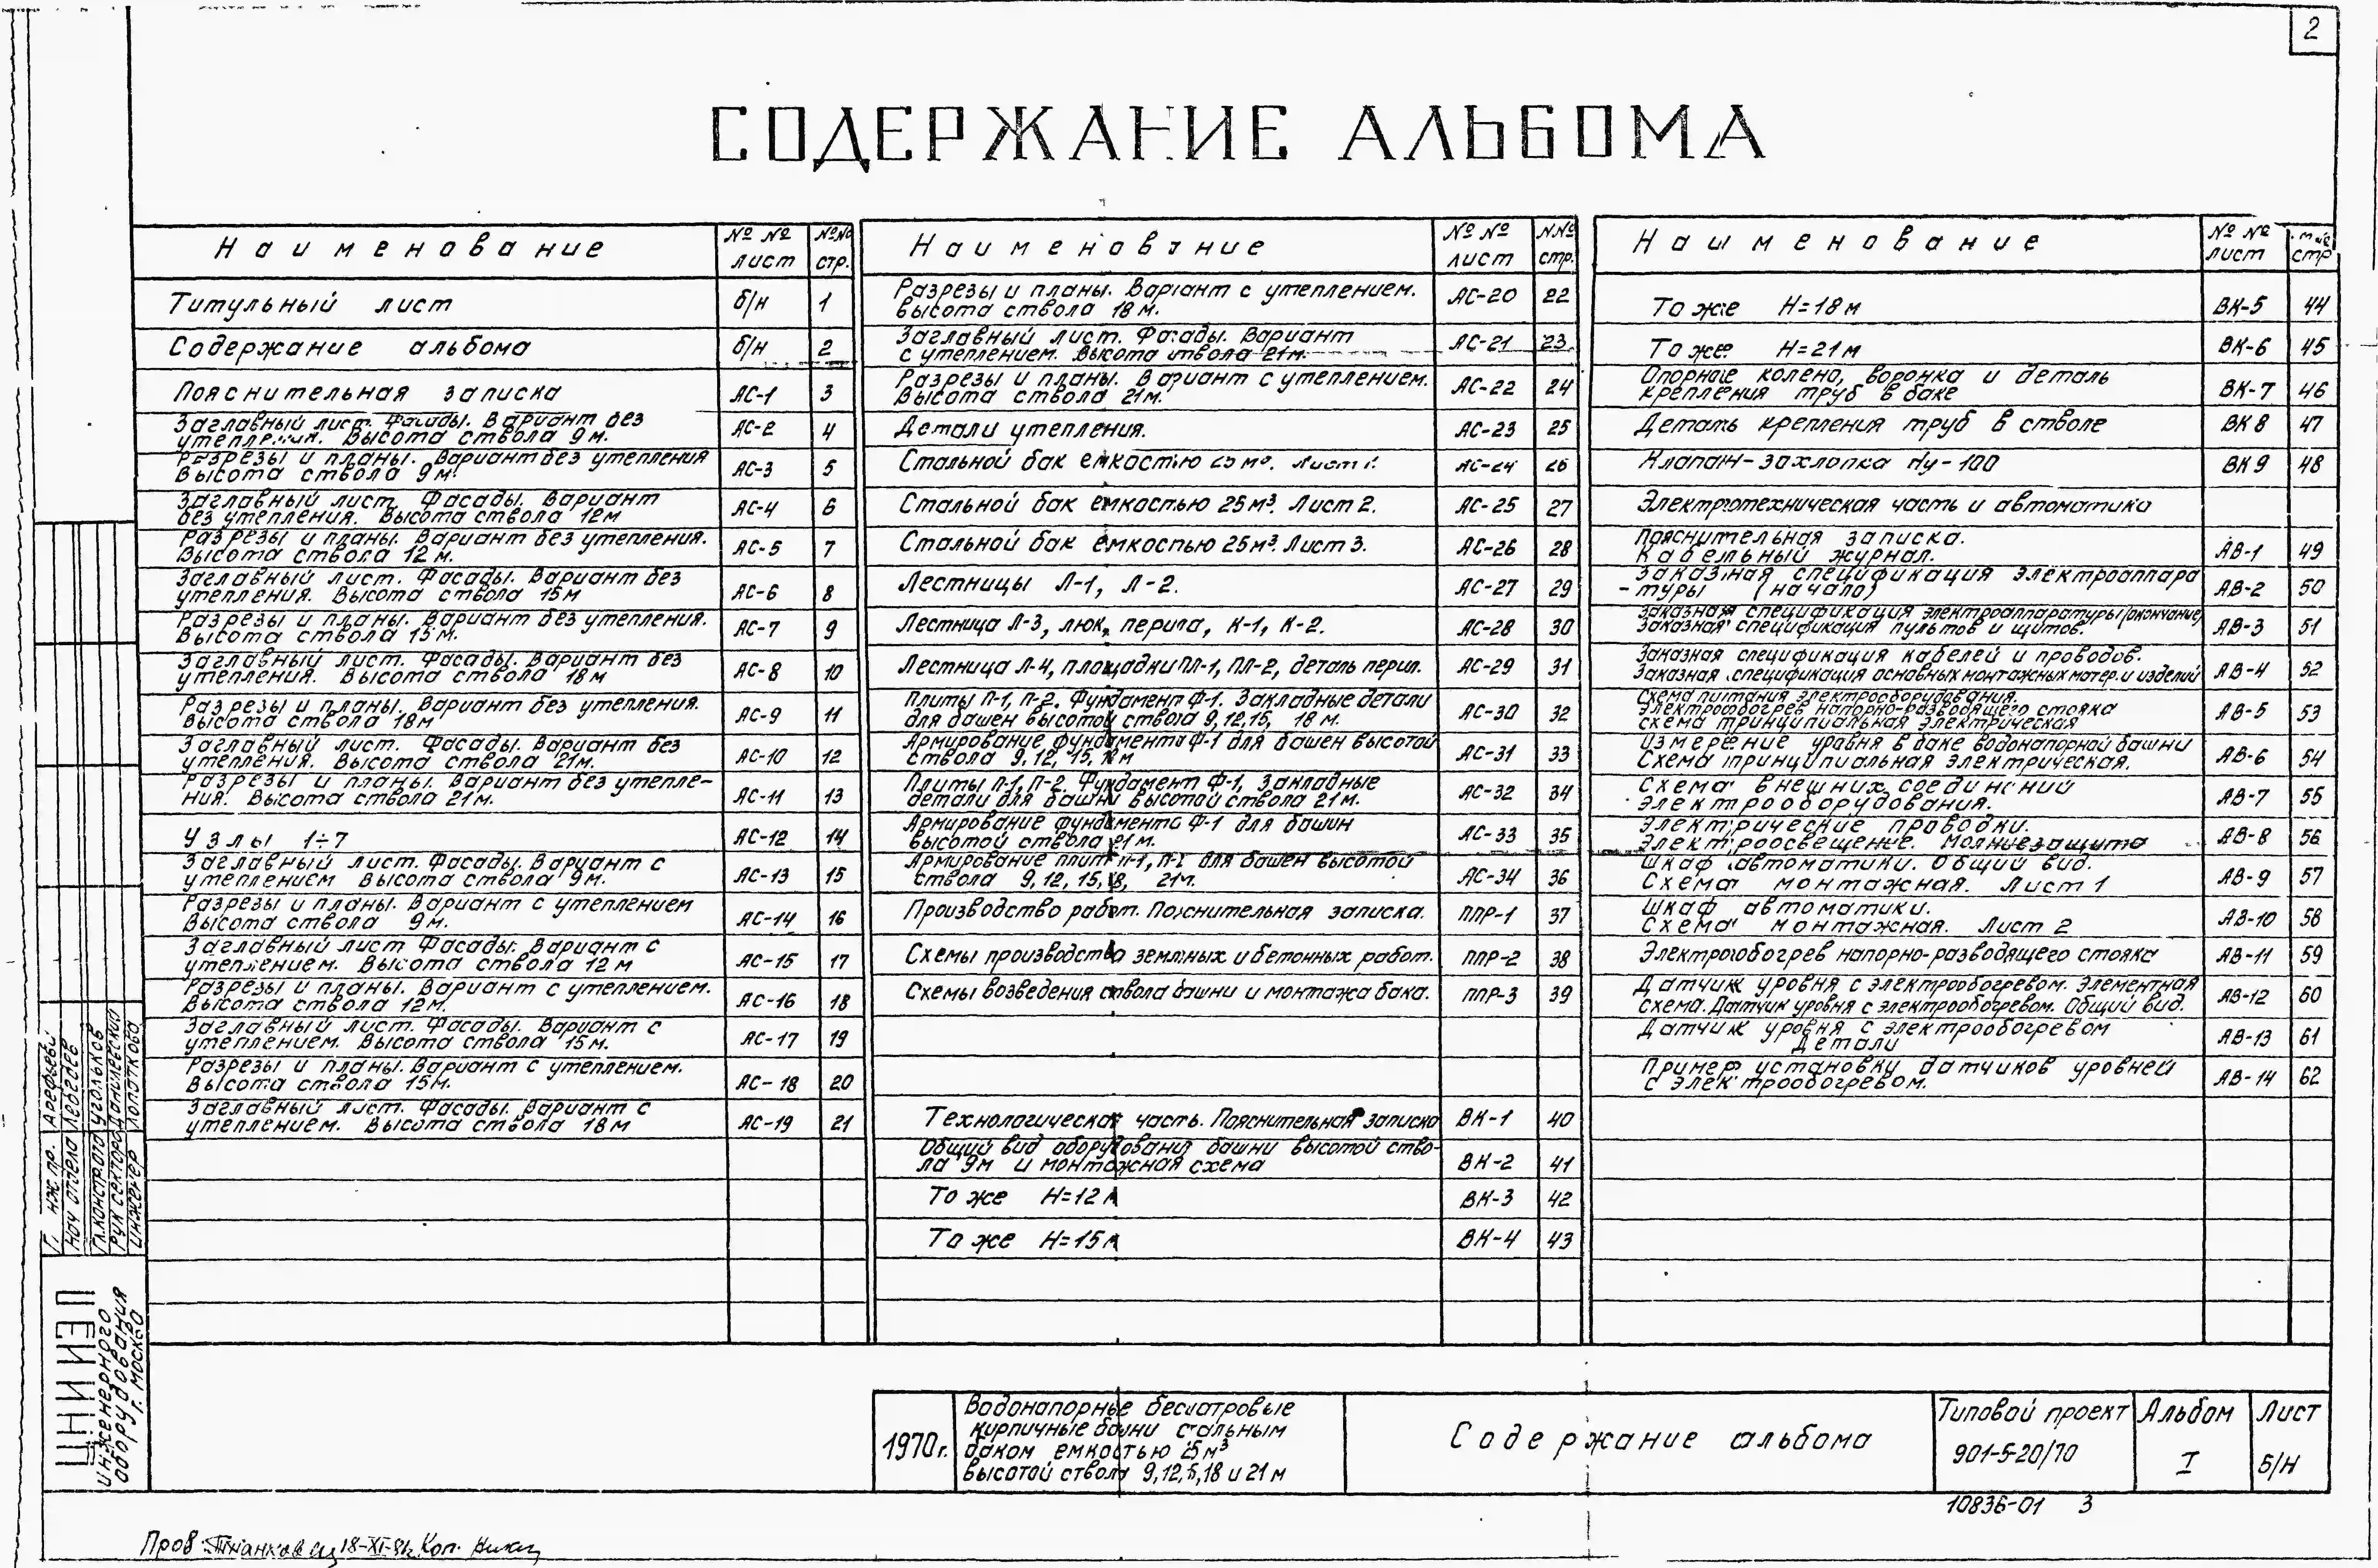 2
СОДЕРЖАНИЕ АЛЬБОМА
Наименование №№ лист №№ стр.
Титульный лист б/н 1
Содержание альбома б/н 2
Пояснительная записка АС-1 3
Заглавный лист. Фасады. Вариант без
утепления. Высота ствола 9м. АС-2 4
Разрезы и планы. Вариант без утепления
Высота ствола 9м. АС-3 5
Заглавный лист. Фасады. Вариант
без утепления. Высота ствола 12м АС-4 6
Разрезы и планы. Вариант без утепления.
Высота ствола 12м. АС-5 7
Заглавный лист. Фасады. Вариант без
утепления. Высота ствола 15м АС-6 8
Разрезы и планы. Вариант без утепления.
Высота ствола 15м. АС-7 9
Заглавный лист. Фасады. Вариант без
утепления. Высота ствола 18м АС-8 10
Разрезы и планы. Вариант без утепления.
Высота ствола 18м АС-9 11
Заглавный лист. Фасады. Вариант без
утепления. Высота ствола 21м. АС-10 12
Разрезы и планы. Вариант без утепле-
ния. Высота ствола 21м. АС-11 13
Узлы 1÷7 АС-12 14
Заглавный лист. Фасады. Вариант с
утеплением Высота ствола 9м. АС-13 15
Разрезы и планы. Вариант с утеплением
Высота ствола 9м. АС-14 16
Заглавный лист Фасады. Вариант с
утеплением. Высота ствола 12м АС-15 17
Разрезы и планы. Вариант с утеплением.
Высота ствола 12м. АС-16 18
Заглавный лист. Фасады. Вариант с
утеплением. Высота ствола 15м. АС-17 19
Разрезы и планы. Вариант с утеплением.
Высота ствола 15м. АС-18 20
Заглавный лист. Фасады. Вариант с
утеплением. Высота ствола 18м АС-19 21
Наименование №№ лист №№ стр.
Разрезы и планы. Вариант с утеплением.
Высота ствола 18м. АС-20 22
Заглавный лист. Фасады. Вариант
с утеплением. Высота ствола 21м. АС-21 23
Разрезы и планы. Вариант с утеплением.
Высота ствола 21м. АС-22 24
Детали утепления. АС-23 25
Стальной бак емкостью 25м³. Лист 1. АС-24 26
Стальной бак емкостью 25м³. Лист 2. АС-25 27
Стальной бак емкостью 25м³. Лист 3. АС-26 28
Лестницы Л-1, Л-2. АС-27 29
Лестница Л-3, люк, перила, К-1, К-2. АС-28 30
Лестница Л-4, площадки ПЛ-1, ПЛ-2, деталь перил. АС-29 31
Плиты П-1, П-2. Фундамент Ф-1. Закладные детали
для башен высотой ствола 9,12,15, 18м. АС-30 32
Армирование фундамента Ф-1 для башен высотой
ствола 9, 12, 15, 18м АС-31 33
Плиты П-1, П-2. Фундамент Ф-1, Закладные
детали для башни высотой ствола 21м. АС-32 34
Армирование фундамента Ф-1 для башин
высотой ствола 21м. АС-33 35
Армирование плит П-1, П-2 для башен высотой
ствола 9, 12, 15, 18, 21м. АС-34 36
Производство работ. Пояснительная записка. ППР-1 37
Схемы производства земляных и бетонных работ. ППР-2 38
Схемы возведения ствола башни и монтажа бака. ППР-3 39
Технологическая часть. Пояснительная записка ВК-1 40
Общий вид оборудования башни высотой ство-
ла 9м и монтажная схема ВК-2 41
То же Н=12м ВК-3 42
То же Н=15м ВК-4 43
Наименование №№ лист стр
То же Н=18м ВК-5 44
То же Н=21м ВК-6 45
Опорные колена, воронка и деталь
крепления труб в баке ВК-7 46
Деталь крепления труб в стволе ВК8 47
Клапан-захлопка Ду-100 ВК9 48
Электротехническая часть и автоматика
Пояснительная записка.
Кабельный журнал. АВ-1 49
Заказная спецификация электроаппара
-туры (начало) АВ-2 50
Заказная спецификация электроаппаратуры (окончание)
Заказная спецификация пультов и щитов. АВ-3 51
Заказная спецификация кабелей и проводов.
Заказная спецификация основных монтажных матер. и изделий АВ-4 52
Схема питания электрооборудования.
Электрообогрев напорно-разводящего стояка
схема принципиальная электрическая АВ-5 53
Измерение уровня в баке водонапорной башни
Схема принципиальная электрическая. АВ-6 54
Схема внешних соединений
электрооборудования. АВ-7 55
Электрические проводки.
Электроосвещение. Молниезащита АВ-8 56
Шкаф автоматики. Общий вид.
Схема монтажная. Лист 1 АВ-9 57
Шкаф автоматики.
Схема монтажная. Лист 2 АВ-10 58
Электрообогрев напорно-разводящего стояка АВ-11 59
Датчик уровня с электрообогревом. Элементная
схема. Датчик уровня с электрообогревом. Общий вид. АВ-12 60
Датчик уровня с электрообогревом
Детали АВ-13 61
Пример установки датчиков уровней
с электрообогревом. АВ-14 62
Г. инж пр. Арефьев
Нач отдела Лебедев
Гл.констр.отд Угольков
Рук сектора Данилевский
инженер Лопаткова
ЦНИИЭП
инженерного
оборудования
г. Москва
1970г.
Водонапорные бесшатровые
кирпичные башни стальным
баком емкостью 25м³
высотой ствола 9,12,15,18 и 21м
Содержание альбома
Типовой проект
901-5-20/70
Альбом
I
Лист
Б/Н
10836-01 3
Пров 18-XI-81г. Коп.